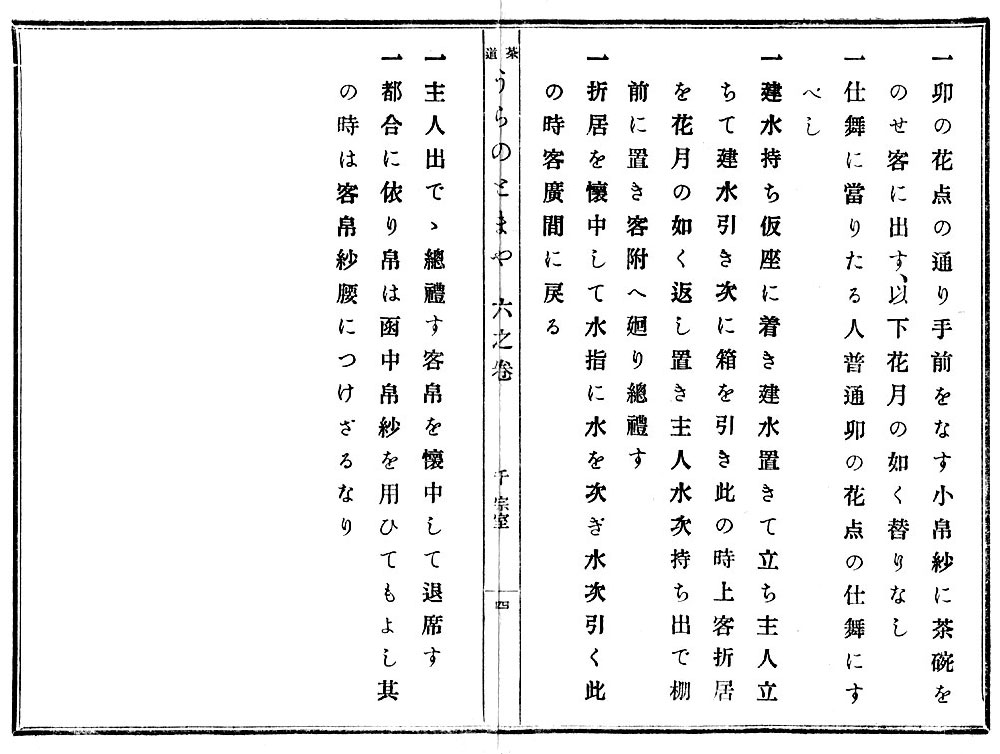 一卯の花点の通り手前をなす小帛紗に茶碗を
のせ客に出す、以下花月の如く替りなし
一仕舞に當りたる人普通卯の花点の仕舞にす
べし
一建水持ち仮座に着き建水置きて立ち主人立
ちて建水引き次に箱を引き此の時上客折居
を花月の如く返し置き主人水次持ち出で棚
前に置き客附へ廻り總禮す
一折居を懐中して水指に水を次ぎ水次引く此
の時客廣間に戻る
茶道
うらのとまや 六之卷
千宗室
四
一主人出でゝ總禮す客帛を懐中して退席す
一都合に依り帛は函中帛紗を用ひてもよし其
の時は客帛紗腰につけざるなり